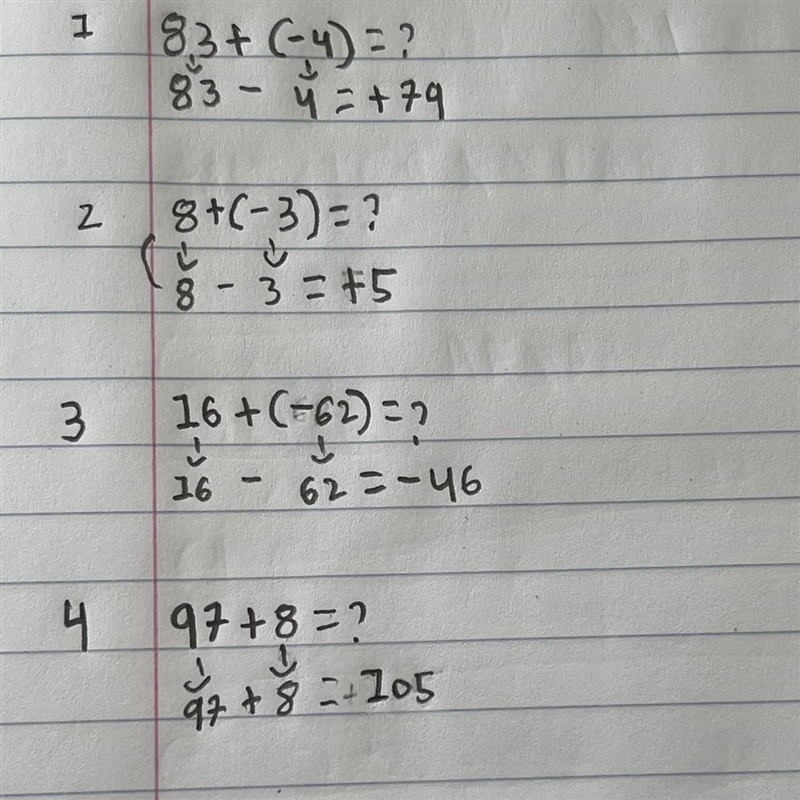 1 83 + (-4) = ?
83 - 4 = +79
2 8 + (-3) = ?
8 - 3 = +5
3 16 + (-62) = ?
16 - 62 = -46
4 97 + 8 = ?
97 + 8 = +105